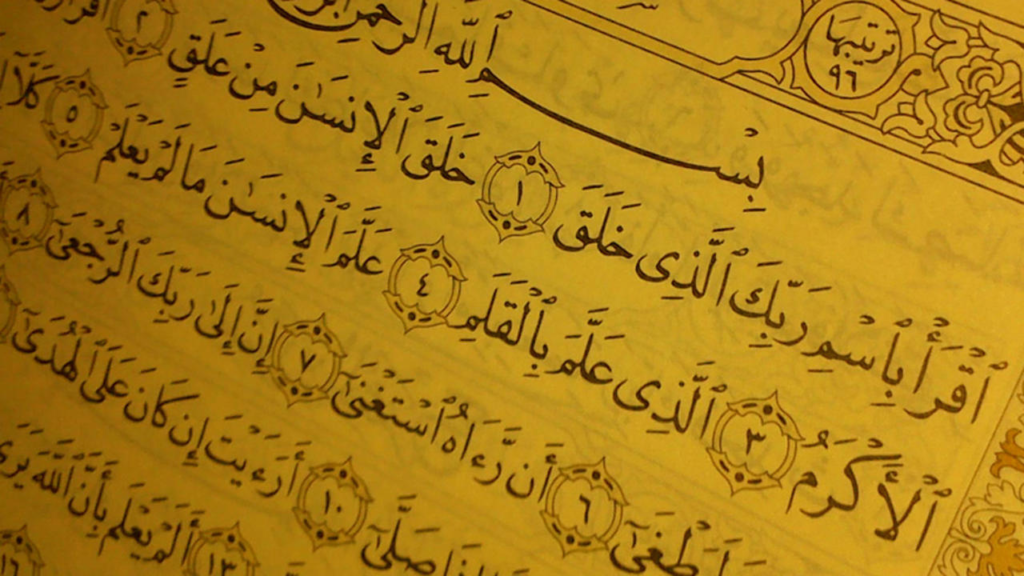 ترتيبها
٩٦
بِسْمِ ٱللَّهِ ٱلرَّحْمَٰنِ
ٱقْرَأْ بِٱسْمِ رَبِّكَ ٱلَّذِى خَلَقَ ١ خَلَقَ ٱلْإِنسَٰنَ مِنْ عَلَقٍ ٢
ٱلْأَكْرَمُ ٣ ٱلَّذِى عَلَّمَ بِٱلْقَلَمِ ٤ عَلَّمَ ٱلْإِنسَٰنَ مَا لَمْ يَعْلَمْ ٥ كَلَّآ
٦ أَن رَّءَاهُ ٱسْتَغْنَىٰٓ ٧ إِنَّ إِلَىٰ رَبِّكَ ٱلرُّجْعَىٰٓ ٨
صَلَّىٰٓ ١٠ أَرَءَيْتَ إِن كَانَ عَلَى ٱلْهُدَىٰٓ
١٣ أَلَمْ يَعْلَم بِأَنَّ ٱللَّهَ يَرَىٰ